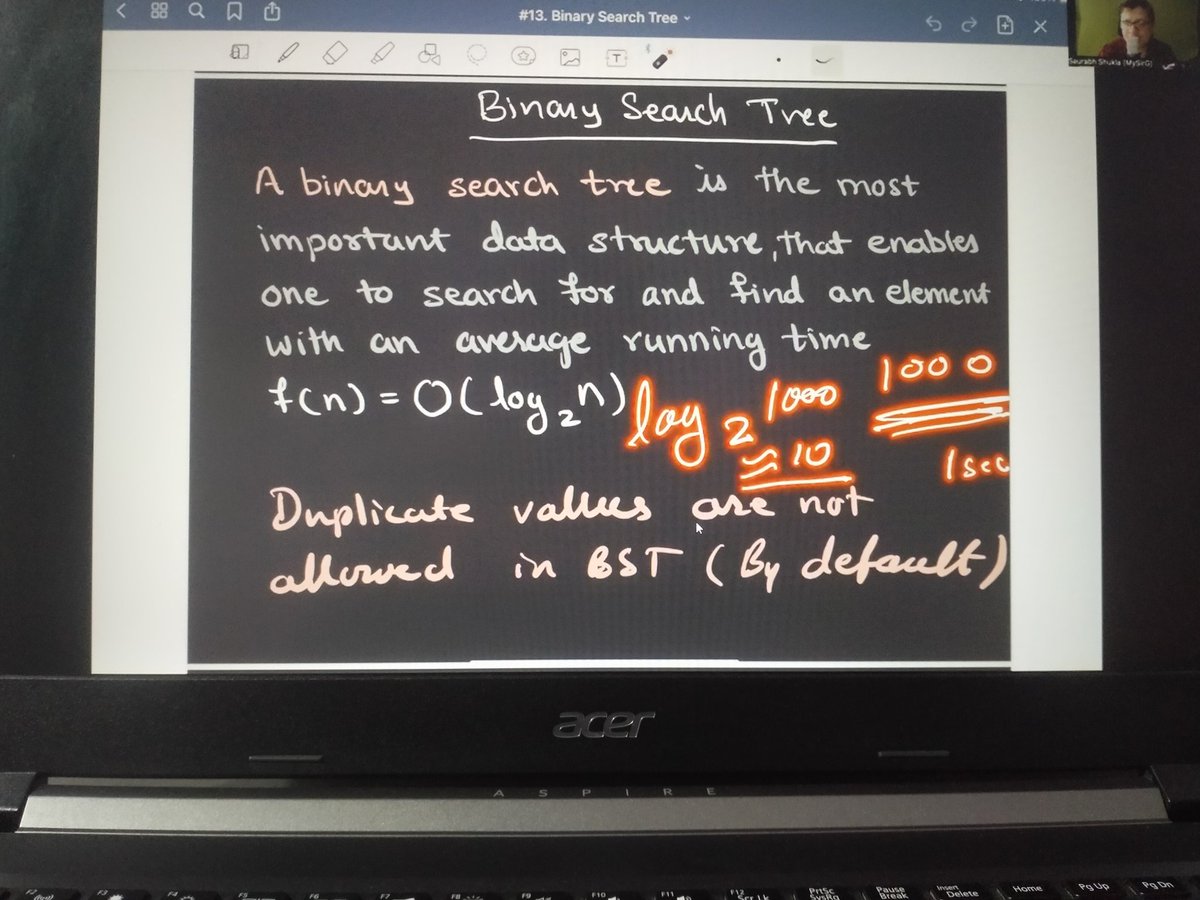 #13. Binary Search Tree
Saurabh Shukla (MySirG)
Binary Search Tree
A binary search tree is the most
important data structure, that enables
one to search for and find an element
with an average running time
f(n) = O(log₂n)
log₂ 1000
≈ 10
1000
1 sec
Duplicate values are not
allowed in BST (By default)
acer
ASPIRE
F2
F3
F4
F5
F6
F7
F8
F9
F10
F11
F12
Scr Lk
PrtSc
SysRq
Pause
Break
Insert
Delete
Home
Pg Up
Pg Dn